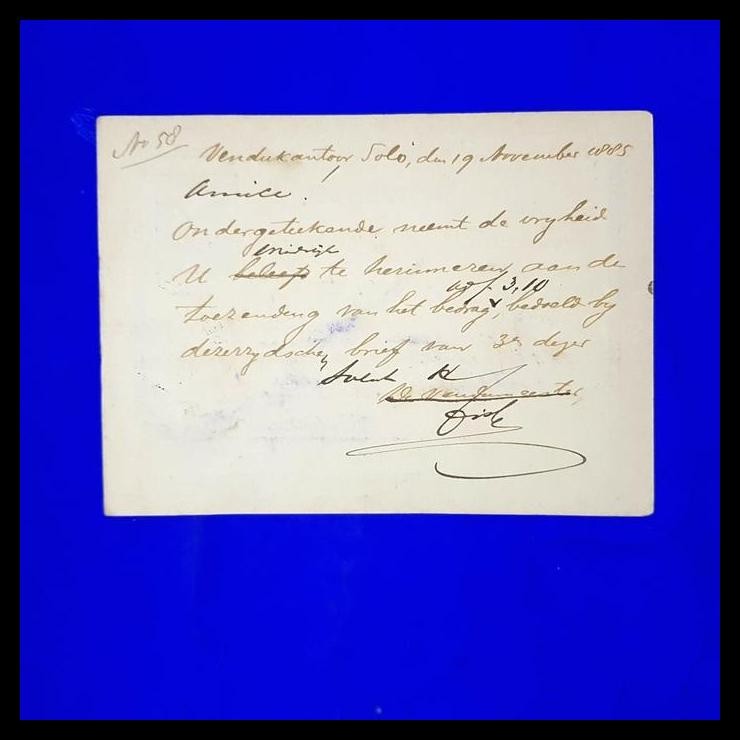 No 58
Vendukantoor Solo, den 19 November 1885
Amice!
Ondergeteekende neemt de vryheid
U beleefd te herinneren aan de
toezending van het bedrag, bedoeld by
ad f 3,10
dezerzydschen brief van 3en dezer
De Vendumeester,